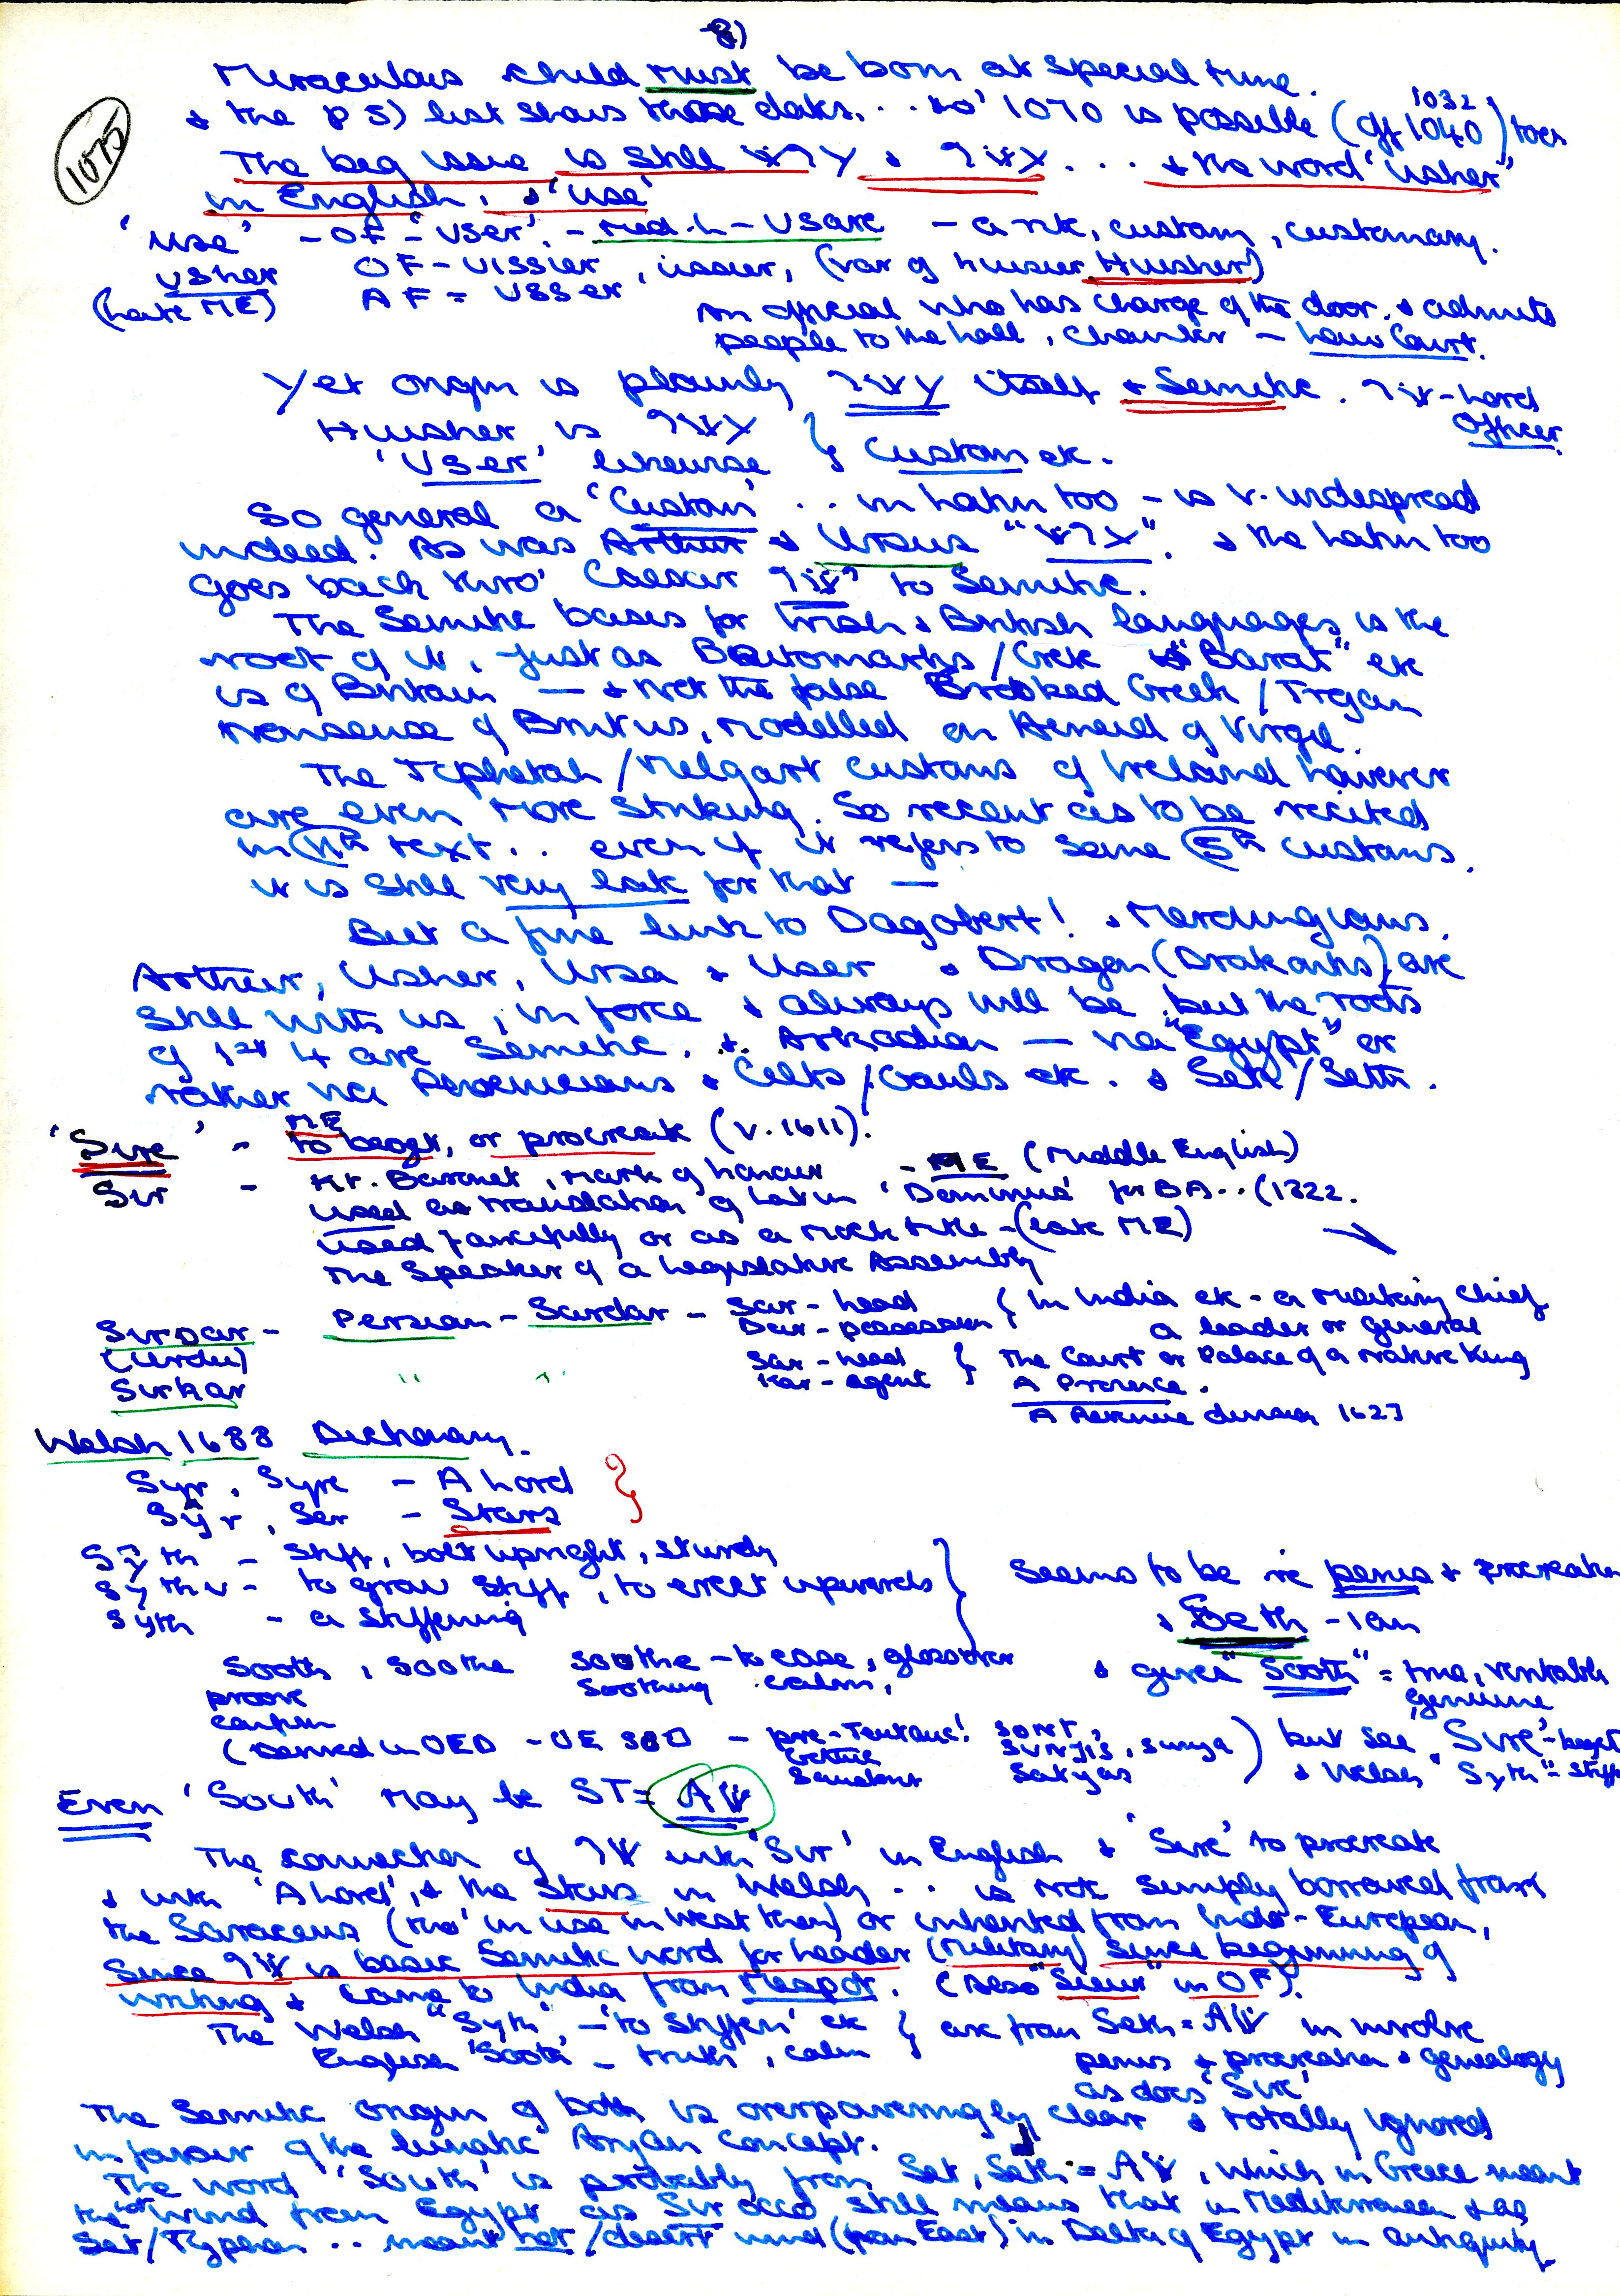 8)
Miraculous child must be born at special time.
1075
& the p 5) list shows those dates... so' 1070 is possible (off 1040) too
1032
The big issue is still & ... & the word 'Usher'
in English, & 'Use'
'Use' - OF - 'User', - Med. L - Usare - a rite, custom, customary.
Usher OF - Uissier, ussier, (var of huisier Husher)
(Late ME) AF = Usser
An official who has charge of the door & admits
people to the hall, chamber - Law Court.
Yet origin is plainly itself & Semitic. - Lord
Officer.
Husher is } Custom etc.
'User' likewise
So general a 'Custom' .. in Latin too - is v. widespread
indeed. As was Arthur & Ursus " ". & the Latin too
goes back thro' Caesar to Semitic.
The Semitic bases for Irish & British languages is the
root of it, just as Britomartis / Crete "Barat" etc
is of Britain — & not the false Greek / Trojan
nonsense of Brutus, modelled on Aeneid of Virgil.
The Tephetah / Melqart customs of Ireland however
are even more striking. So recent as to be recited
in 11th text .. even if it refers to some 5th customs,
it is still very late for that —
But a fine link to Dagobert! & Merovingians.
Arthur, Usher, Ursa & User & Dragon (Drakontis) are
still with us, in force & always will be, but the roots
of 1st 4 are Semitic. & Arkadian — via "Egypt" or
rather via Phoenicians & Celts / Gauls etc. & Set / Seth.
'Sire' - ME to beget, or procreate (v. 1611).
Sir - Kt. Baronet, mark of honour - ME (Middle English)
used as translation of Latin 'Dominus' for BA.. (1822.
used fancifully or as a mock title - (late ME)
The Speaker of a Legislative Assembly
Sirdar - Persian - Sardar - Sar - head { In India etc - a military chief
(Urdu) Dar - possession a leader or general
Sirkar " " Sar - head } The Court or Palace of a native King
Kar - agent A Province.
A Revenue division 1627
Welsh 1688 Dictionary.
Syr, Syre - A Lord }
Sŷr, Ser - Stars
Sŷth - Stiff, bolt upright, sturdy
Sŷthu - to grow stiff, to erect upwards } Seems to be re penis & procreation
Sŷth - a stiffening & Seth - ian
Sooth, Soothe Soothe - to ease, gloss over & gives "Sooth" = true, veritable
prove Soothing calm, genuine
confirm
(Derived in OED - OE soð - pre-Teutonic! sont, , sunja) but see 'Sire' - beget
Gothic sunjis
Sanskrit satyas & Welsh 'Syth' = stiff
Even 'South' may be ST =
The connection of with 'Sir' in English & 'Sire' to procreate
& with 'A Lord', & the Stars in Welsh .. is not simply borrowed from
the Saracens (tho' in use in West then) or inherited from Indo-European,
Since is basic Semitic word for Leader (Military) since beginning of
writing & came to India from Mesopot. (Also "Sieur" in OF).
The Welsh "Syth", - 'to stiffen' etc } are from Seth = in involve
English 'Sooth' - truth, calm penis & procreation & genealogy
as does 'Sire'
The Semitic origin of both is overpoweringly clear & totally ignored
in favour of the lunatic Aryan concept.
The word 'South' is probably from Set, Seth = , which in Greece meant
the hot wind from Egypt as Sirocco still means that in Mediterranean & as
Set / Typhon .. meant hot / desert wind (from East) in Delta of Egypt in antiquity